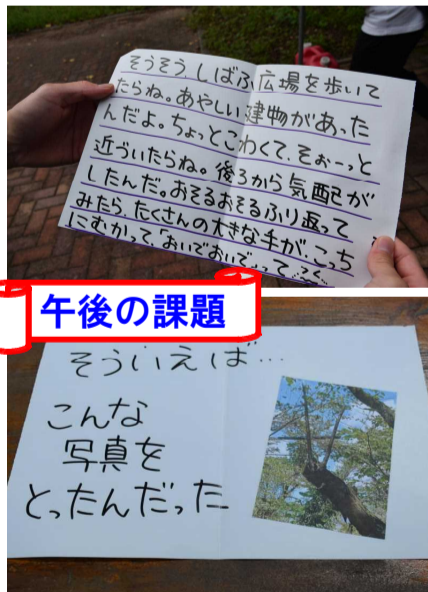 そうそう、しばふ広場を歩いて
たらね。あやしい建物があった
んだよ。ちょっとこわくて、そぉーっと
近づいたらね。後ろから気配が
したんだ。おそるおそるふり返って
みたら、たくさんの大きな手が、こっち
にむかって、「おいでおいで…って
午後の課題
そういえば…
こんな
写真を
とったんだった